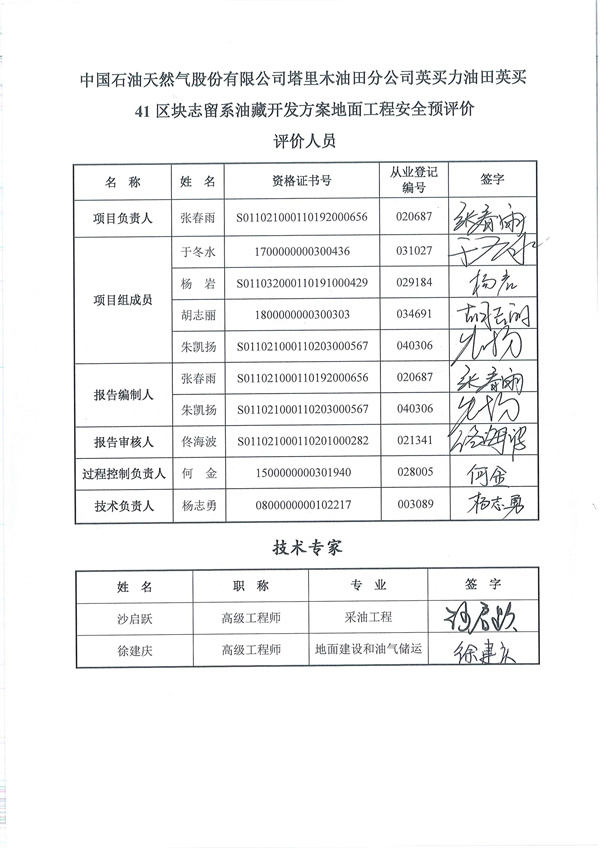 中国石油天然气股份有限公司塔里木油田分公司英买力油田英买
41 区块志留系油藏开发方案地面工程安全预评价
评价人员
名 称 姓 名 资格证书号 从业登记编号 签字
项目负责人 张春雨 S011021000110192000656 020687 张春雨
项目组成员 于冬水 1700000000300436 031027 于冬水
杨 岩 S011032000110191000429 029184 杨岩
胡志丽 1800000000300303 034691
朱凯扬 S011021000110203000567 040306
报告编制人 张春雨 S011021000110192000656 020687 张春雨
朱凯扬 S011021000110203000567 040306
报告审核人 佟海波 S011021000110201000282 021341 佟海波
过程控制负责人 何 金 1500000000301940 028005 何金
技术负责人 杨志勇 0800000000102217 003089 杨志勇
技术专家
姓 名 职 称 专 业 签 字
沙启跃 高级工程师 采油工程 沙启跃
徐建庆 高级工程师 地面建设和油气储运 徐建庆